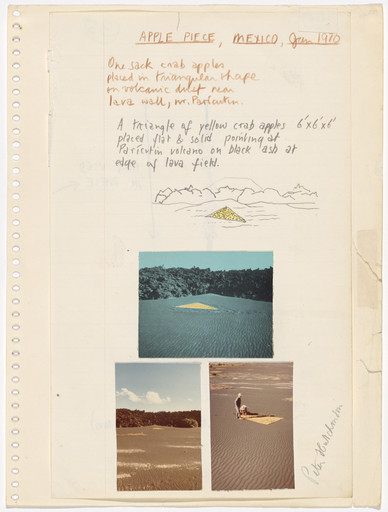 APPLE PIECE, MEXICO, Jan 1970
One sack crab apples
placed in triangular shape
on volcanic dust near
lava wall, nr. Paricutin.
A triangle of yellow crab apples 6'x6'x6'
placed flat & solid pointing at
Paricutin volcano on black ash at
edge of lava field.
Peter Hutchinson